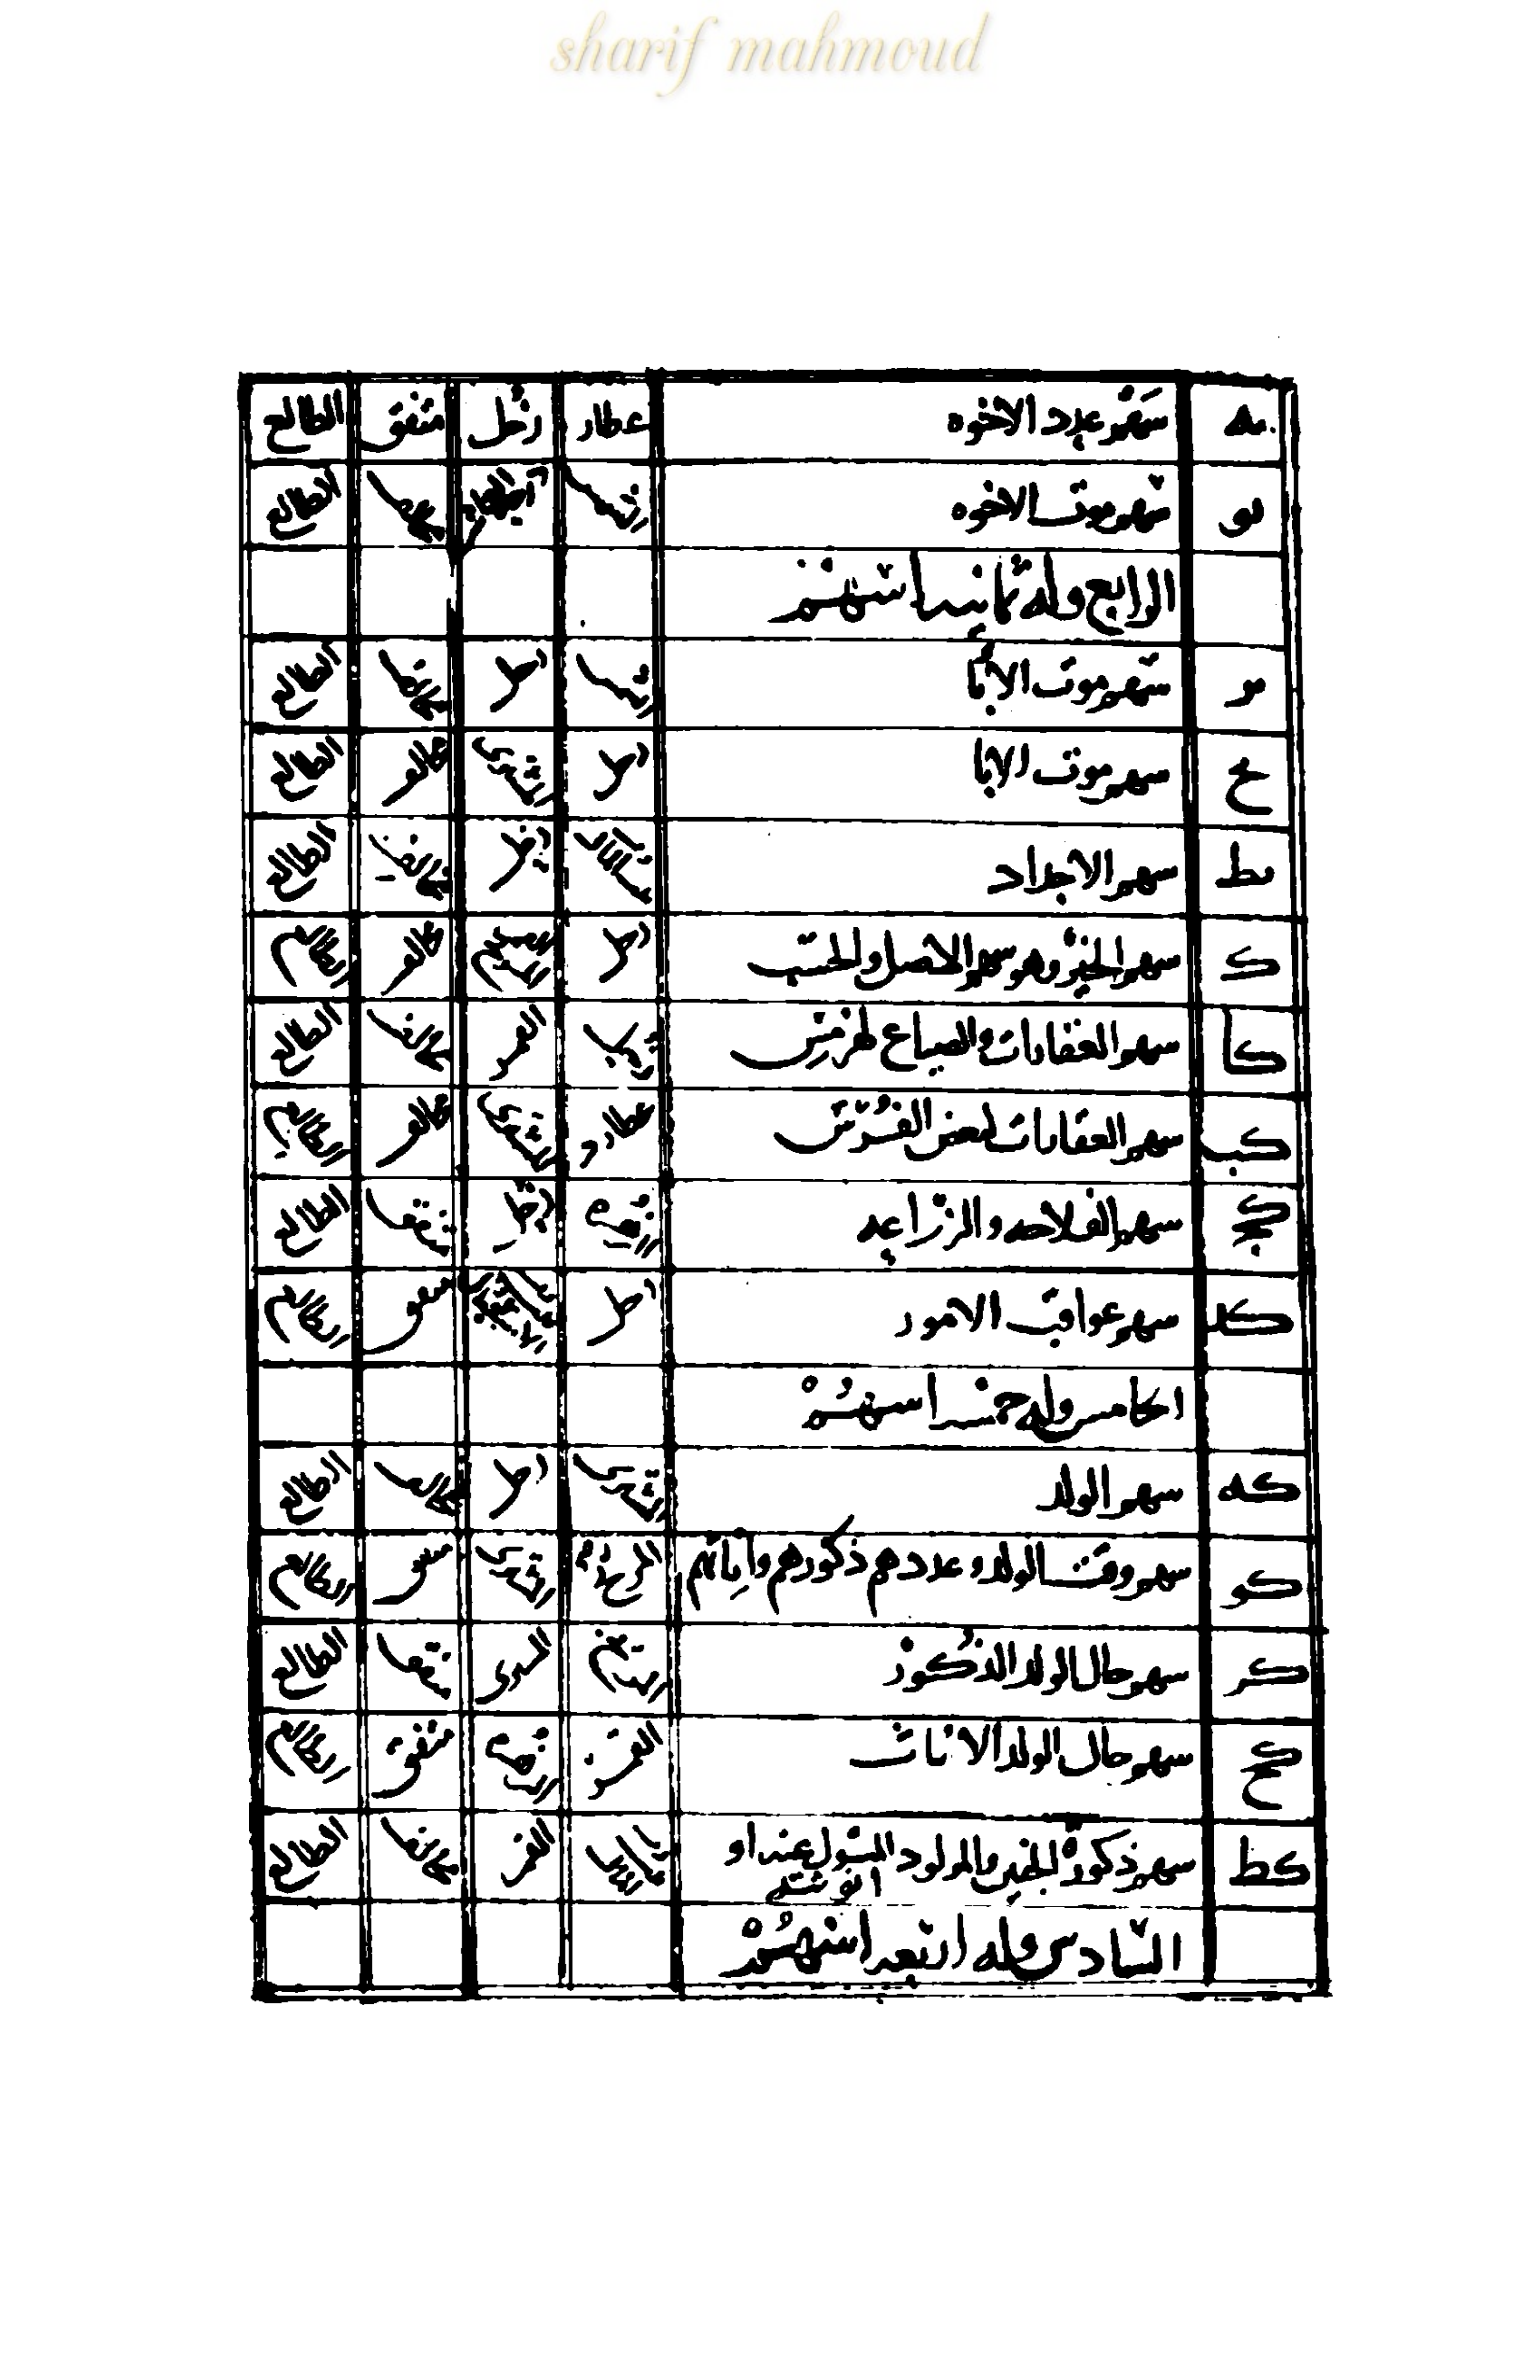 sharif mahmoud
يه سهم عدد الاخوه عطارد زحل متفق الطالع
يو سهم موت الاخوه الشمس الطالع
الرابع وله ثمانية اسهم
ير سهم موت الابا الشمس زحل مخالف الطالع
يح سهم موت الابا زحل المشترى مخالف الطالع
يط سهم الاجداد زحل مخالف الطالع
ك سهم الخير وهو سهم الاصل والحسب زحل المريخ مخالف الطالع
كا سهم العقارات والضياع لهرمس القمر مخالف الطالع
كب سهم العقارات لبعض الفرس عطارد المشترى مخالف الطالع
كج سهم الفلاحه والزراعه الزهره زحل متفق الطالع
كد سهم عواقب الامور زحل متفق الطالع
الخامس وله خمسة اسهم
كه سهم الولد المشترى زحل مخالف الطالع
كو سهم وقت الولد وعددهم ذكورهم واناثهم المريخ المشترى متفق الطالع
كز سهم حال الولد الذكور المشترى متفق الطالع
كح سهم حال الولد الاناث القمر الزهره متفق الطالع
كط سهم ذكورة الجنين المولود المسئول عنه او انوثته القمر مخالف الطالع
السادس وله اربعة اسهم